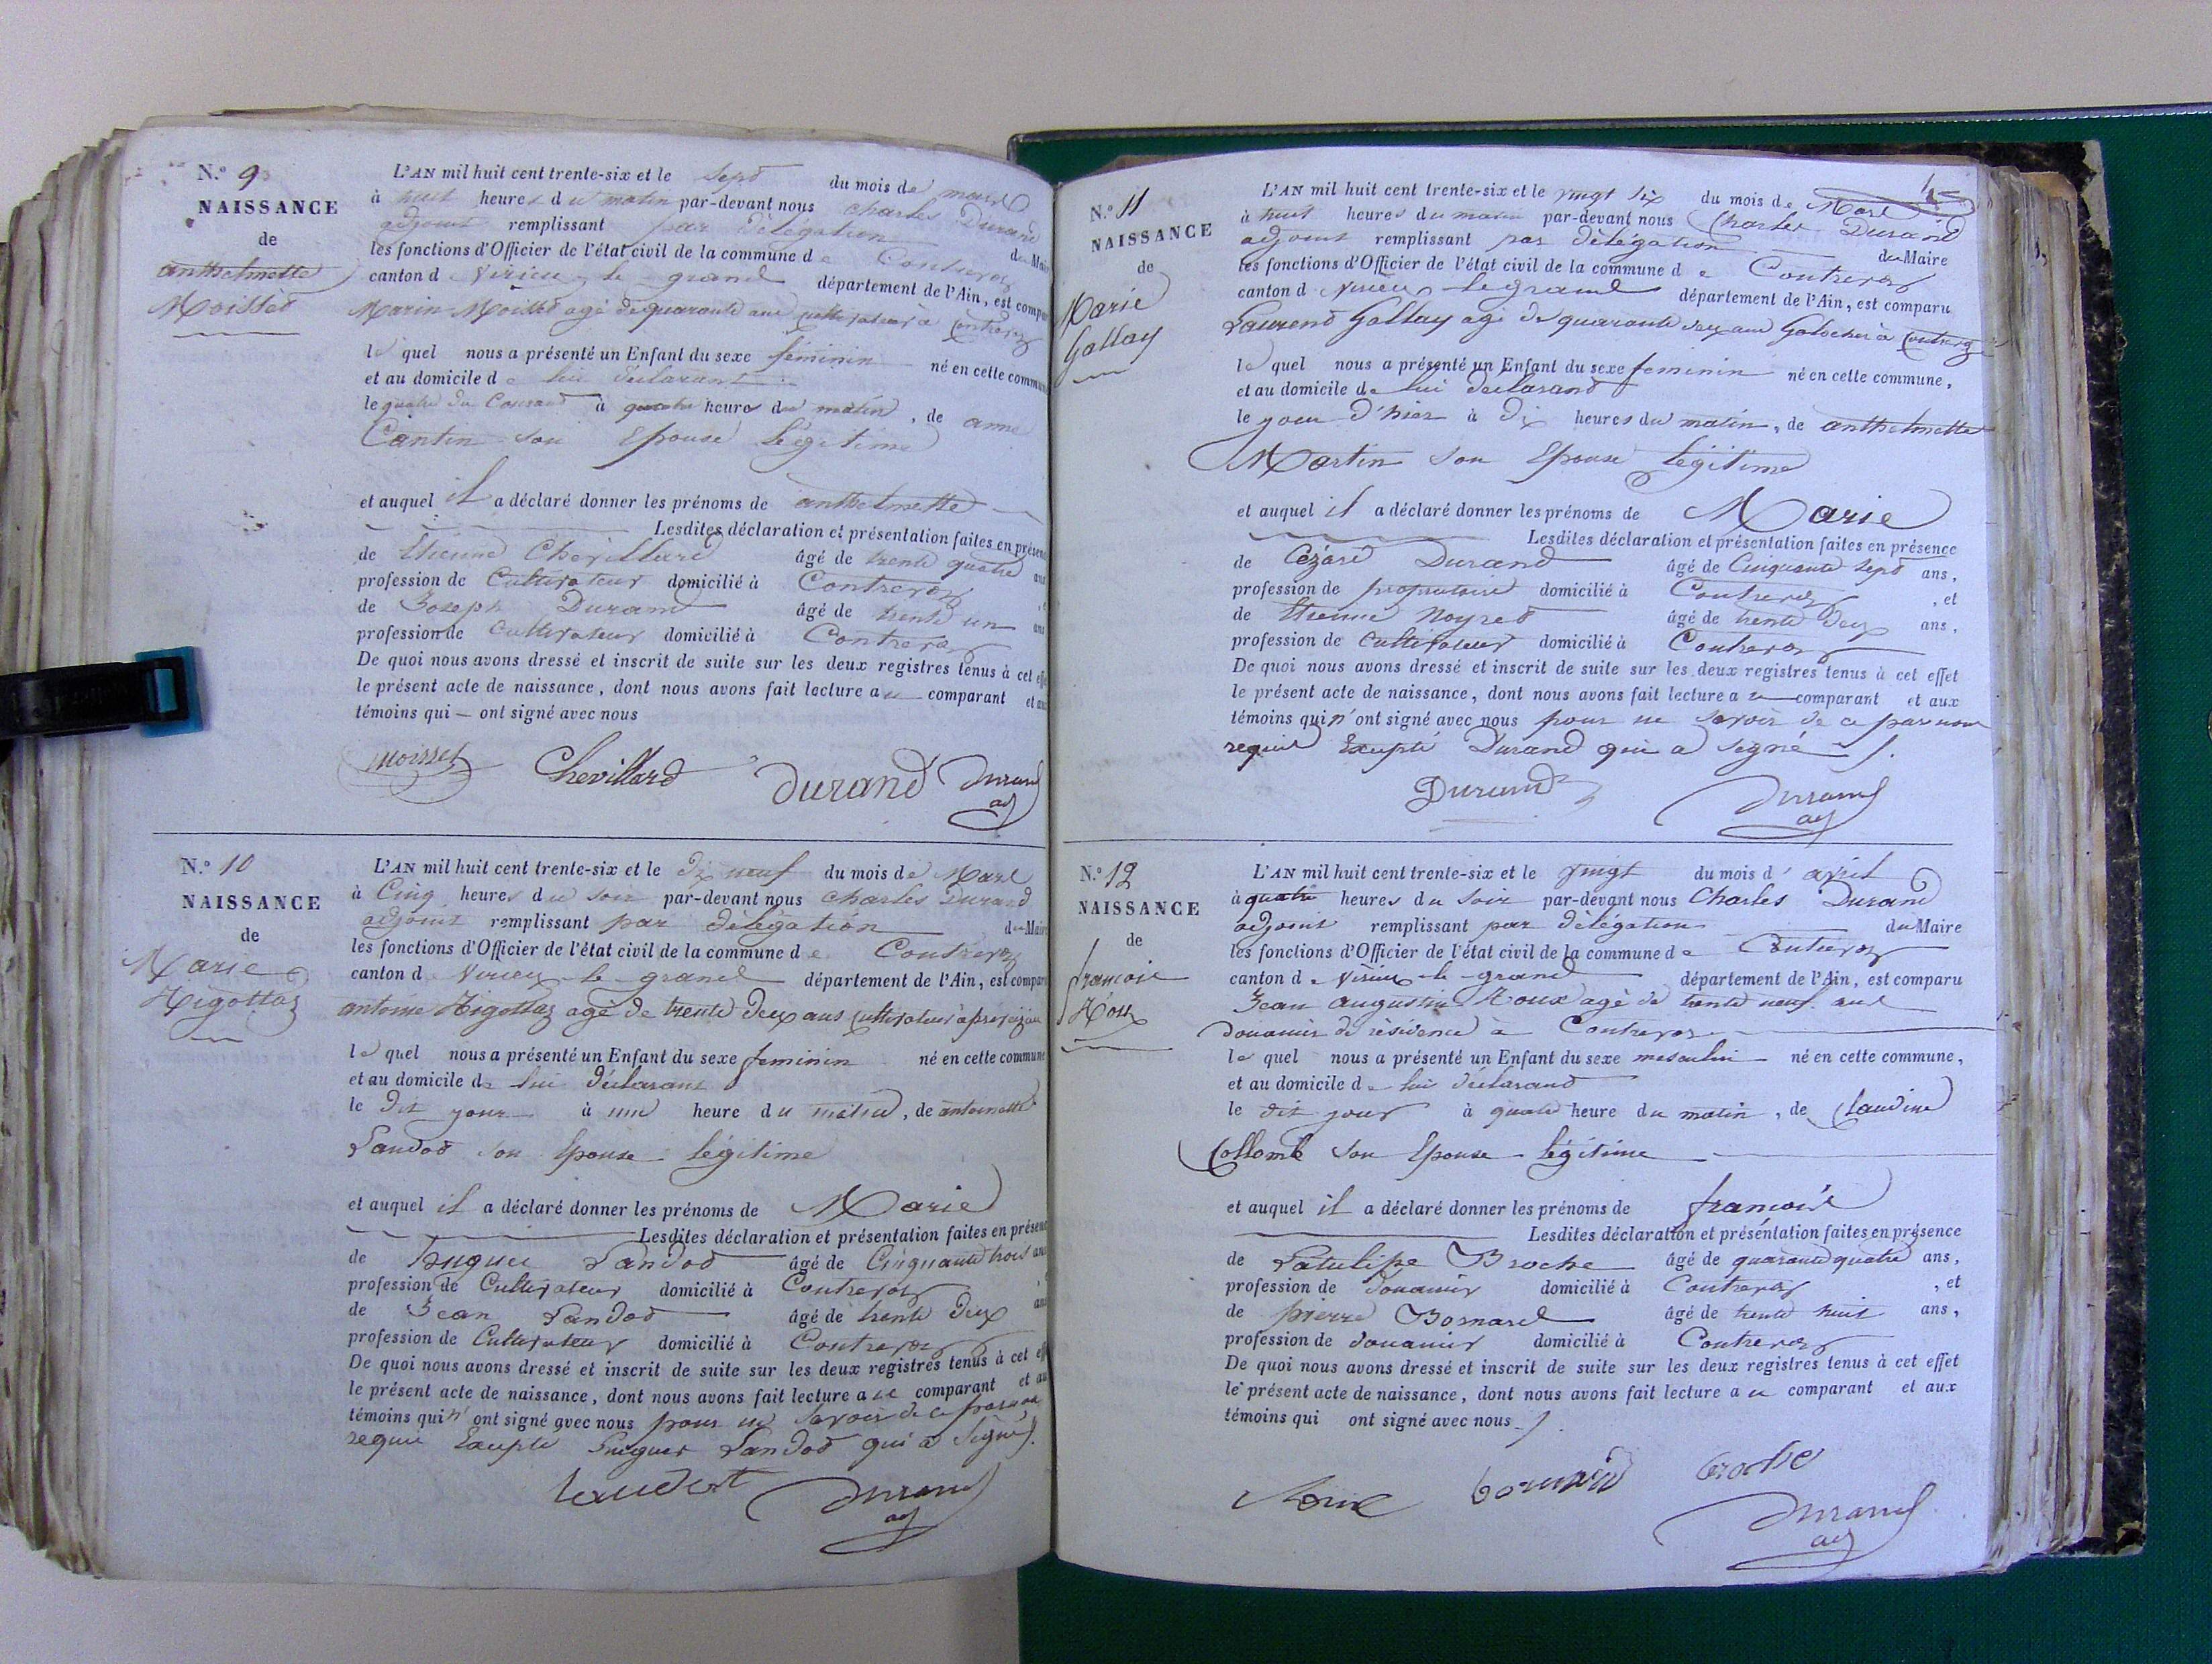 N.º 9
NAISSANCE
de
anthelmette
Moisset
L'AN mil huit cent trente-six et le sept du mois de mars
à huit heures du matin par-devant nous charles Durand
adjoint remplissant par délégation du Maire
les fonctions d'Officier de l'état civil de la commune de Contrevoz
canton d Virieu le grand département de l'Ain, est compar
Marin Moisset agé de quarante ans cultivateur à Contrevoz
le quel nous a présenté un Enfant du sexe féminin né en cette commune
et au domicile de lui déclarant
le quatre du Courant à quatre heures du matin, de anne
Cantin son Epouse légitime
et auquel il a déclaré donner les prénoms de anthelmette
Lesdites déclaration et présentation faites en présen
de Etienne Chevillard âgé de trente quatre ans
profession de Cultivateur domicilié à Contrevoz
de Joseph Durand âgé de trente un ans
profession de Cultivateur domicilié à Contrevoz
De quoi nous avons dressé et inscrit de suite sur les deux registres tenus à cet eff
le présent acte de naissance, dont nous avons fait lecture au comparant et au
témoins qui — ont signé avec nous
Moisset Chevillard Durand Durand adj
N.º 10
NAISSANCE
de
Marie
Rigottaz
L'AN mil huit cent trente-six et le dix neuf du mois de Mars
à Cinq heures du soir par-devant nous charles Durand
adjoint remplissant par délégation du Maire
les fonctions d'Officier de l'état civil de la commune de Contrevoz
canton d Virieu le grand département de l'Ain, est compar
antoine Rigottaz agé de trente deux ans cultivateur à
le quel nous a présenté un Enfant du sexe feminin né en cette commune
et au domicile de lui déclarant
le dit jour à une heure du matin, de antoinette
Landod son Epouse légitime
et auquel il a déclaré donner les prénoms de Marie
Lesdites déclaration et présentation faites en présen
de Landod âgé de Cinquante trois ans
profession de Cultivateur domicilié à Contrevoz
de Jean Landod âgé de trente deux ans
profession de Cultivateur domicilié à Contrevoz
De quoi nous avons dressé et inscrit de suite sur les deux registres tenus à cet eff
le présent acte de naissance, dont nous avons fait lecture au comparant et au
témoins qui n'ont signé avec nous pour ne savoir de ce par nous
requis Excepté Landod qui a signé
Durand adj
N.º 11
NAISSANCE
de
Marie
Gallay
L'AN mil huit cent trente-six et le vingt six du mois de Mars
à huit heures du matin par-devant nous Charles Durand
adjoint remplissant par délégation du Maire
les fonctions d'Officier de l'état civil de la commune de Contrevoz
canton d Virieu le grand département de l'Ain, est comparu
Laurend Gallay agé de quarante deux ans Galocher à Contrevoz
le quel nous a présenté un Enfant du sexe feminin né en cette commune,
et au domicile de lui déclarand
le jour d'hier à dix heures du matin, de anthelmette
Martin son Epouse légitime
et auquel il a déclaré donner les prénoms de Marie
Lesdites déclaration et présentation faites en présence
de Cézard Durand âgé de Cinquante sept ans,
profession de propriétaire domicilié à Contrevoz, et
de Etienne Noyret âgé de trente deux ans,
profession de Cultivateur domicilié à Contrevoz
De quoi nous avons dressé et inscrit de suite sur les deux registres tenus à cet effet
le présent acte de naissance, dont nous avons fait lecture au comparant et aux
témoins qui n'ont signé avec nous pour ne savoir de ce par nous
requis Excepté Durand qui a signé
Durand Durand adj
N.º 12
NAISSANCE
de
francois
Roux
L'AN mil huit cent trente-six et le vingt du mois d'avril
à quatre heures du soir par-devant nous Charles Durand
adjoint remplissant par délégation du Maire
les fonctions d'Officier de l'état civil de la commune de Contrevoz
canton d Virieu le grand département de l'Ain, est comparu
Jean augustin Roux agé de trente neuf ans
douanier de résidence à Contrevoz
le quel nous a présenté un Enfant du sexe masculin né en cette commune,
et au domicile de lui déclarand
le dit jour à quatre heure du matin, de Claudine
Collomb son Epouse légitime
et auquel il a déclaré donner les prénoms de francois
Lesdites déclaration et présentation faites en présence
de Latulipe Broche âgé de quarante quatre ans,
profession de douanier domicilié à Contrevoz, et
de pierre Bornard âgé de trente huit ans,
profession de douanier domicilié à Contrevoz
De quoi nous avons dressé et inscrit de suite sur les deux registres tenus à cet effet
le présent acte de naissance, dont nous avons fait lecture au comparant et aux
témoins qui ont signé avec nous
bornard broche
Durand adj